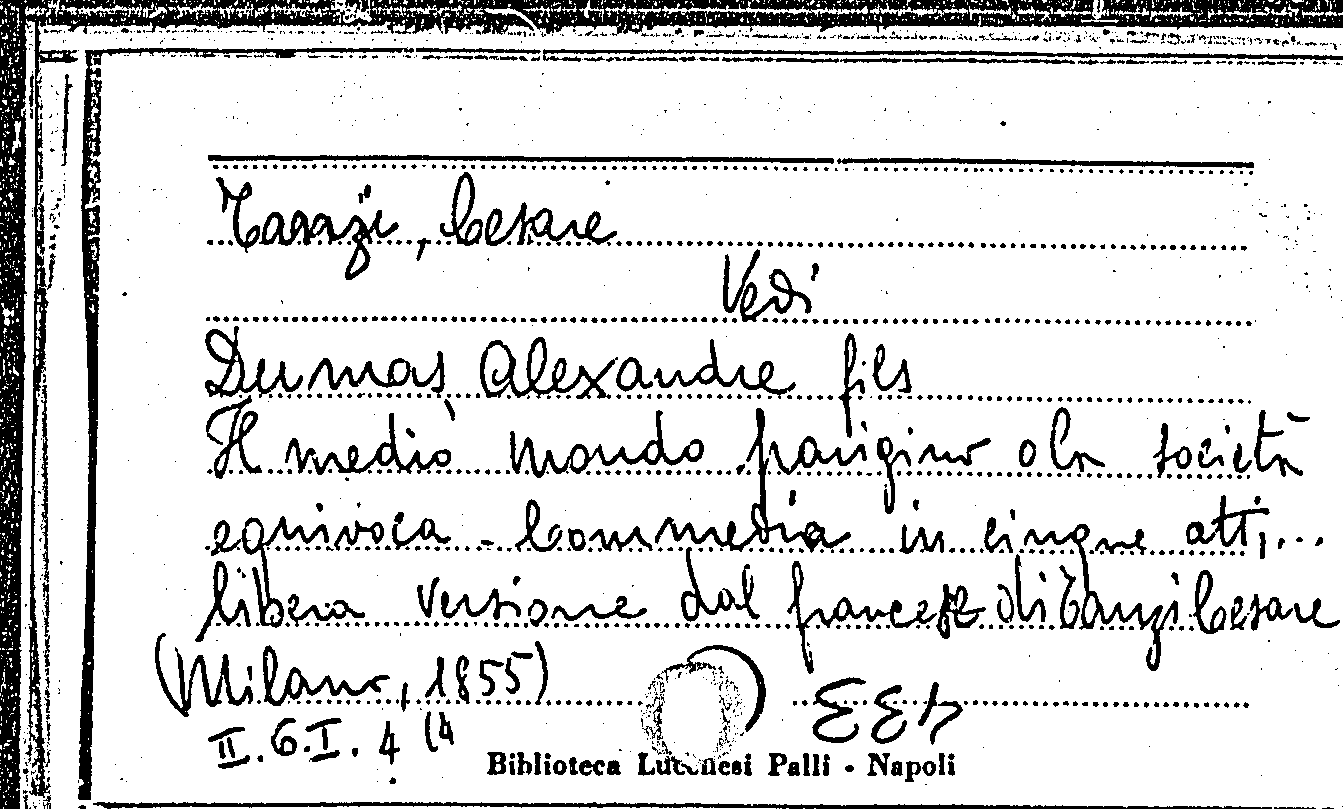 Tarazi, Cesare
Vedi
Dumas Alexandre fils
Il mediò mondo parigino o la società
equivoca - Commedia in cinque atti...
libera versione dal francese di Tanzi Cesare
(Milano, 1855)
II. 6. I. 4 (4
Biblioteca Lucchesi Palli - Napoli